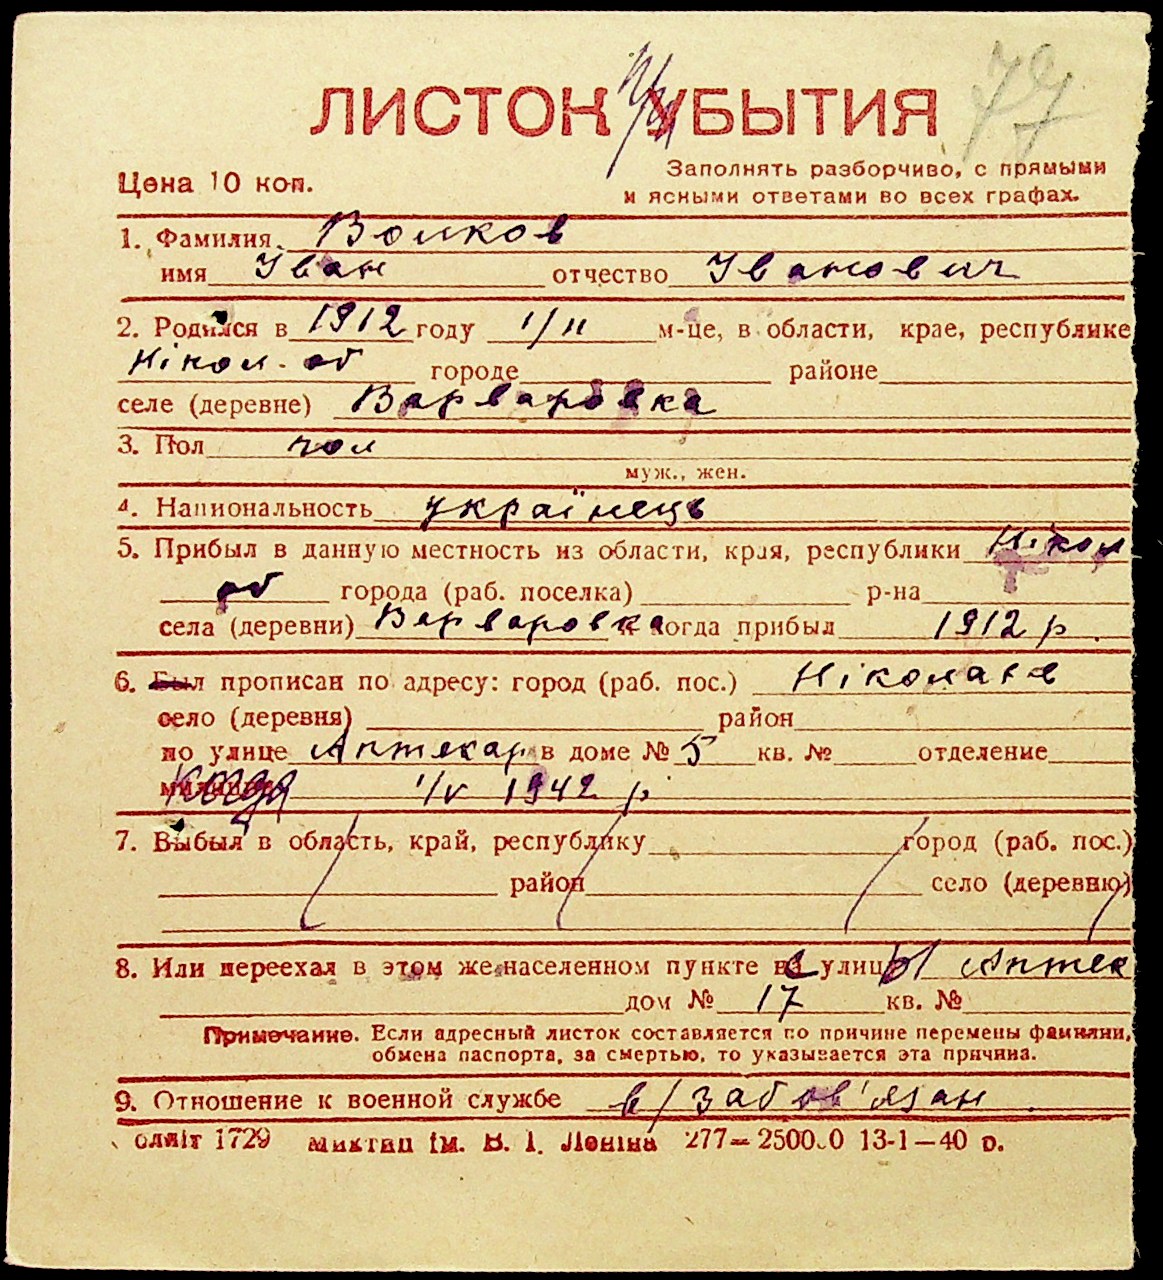 ЛИСТОК УБЫТИЯ
Цена 10 коп.
Заполнять разборчиво, с прямыми
и ясными ответами во всех графах.
1. Фамилия Волков
имя Іван отчество Іванович
2. Родился в 1912 году 1/II м-це, в области, крае, республике
Нікол. об городе районе
селе (деревне) Варваровка
3. Пол чол
муж., жен.
4. Национальность українець
5. Прибыл в данную местность из области, края, республики Нікол
об города (раб. поселка) р-на
села (деревни) Варваровка и когда прибыл 1912 р.
6. Был прописан по адресу: город (раб. пос.) Ніколаєв
село (деревня) район
по улице Аптекар в доме № 5 кв. № отделение
когда 1/V 1942 р
7. Выбыл в область, край, республику город (раб. пос.)
район село (деревню)
8. Или переехал в этом же населенном пункте с улицы Аптек
дом № 17 кв. №
Примечание. Если адресный листок составляется по причине перемены фамилии,
обмена паспорта, за смертью, то указывается эта причина.
9. Отношение к военной службе в/забов'язан.
1729 ім. В. І. Леніна 277— 13-1—40 р.